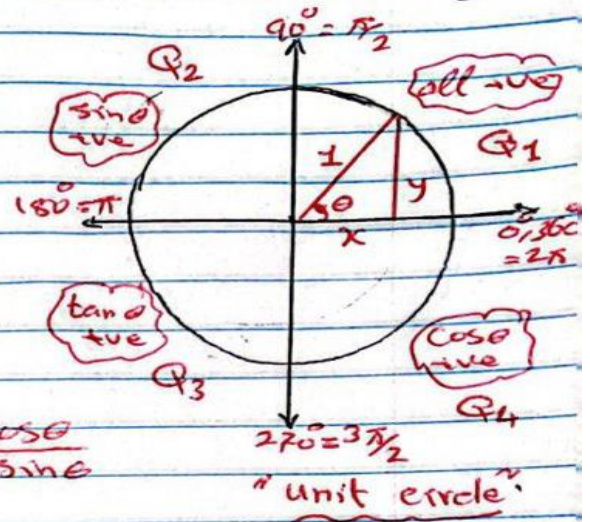 90° = π/2
Q2
all +ve
sinθ
+ve
Q1
1
θ
y
x
180° = π
0°, 360°
= 2π
tanθ
+ve
cosθ
+ve
Q3
Q4
cosθ
sinθ
270° = 3π/2
"unit circle".